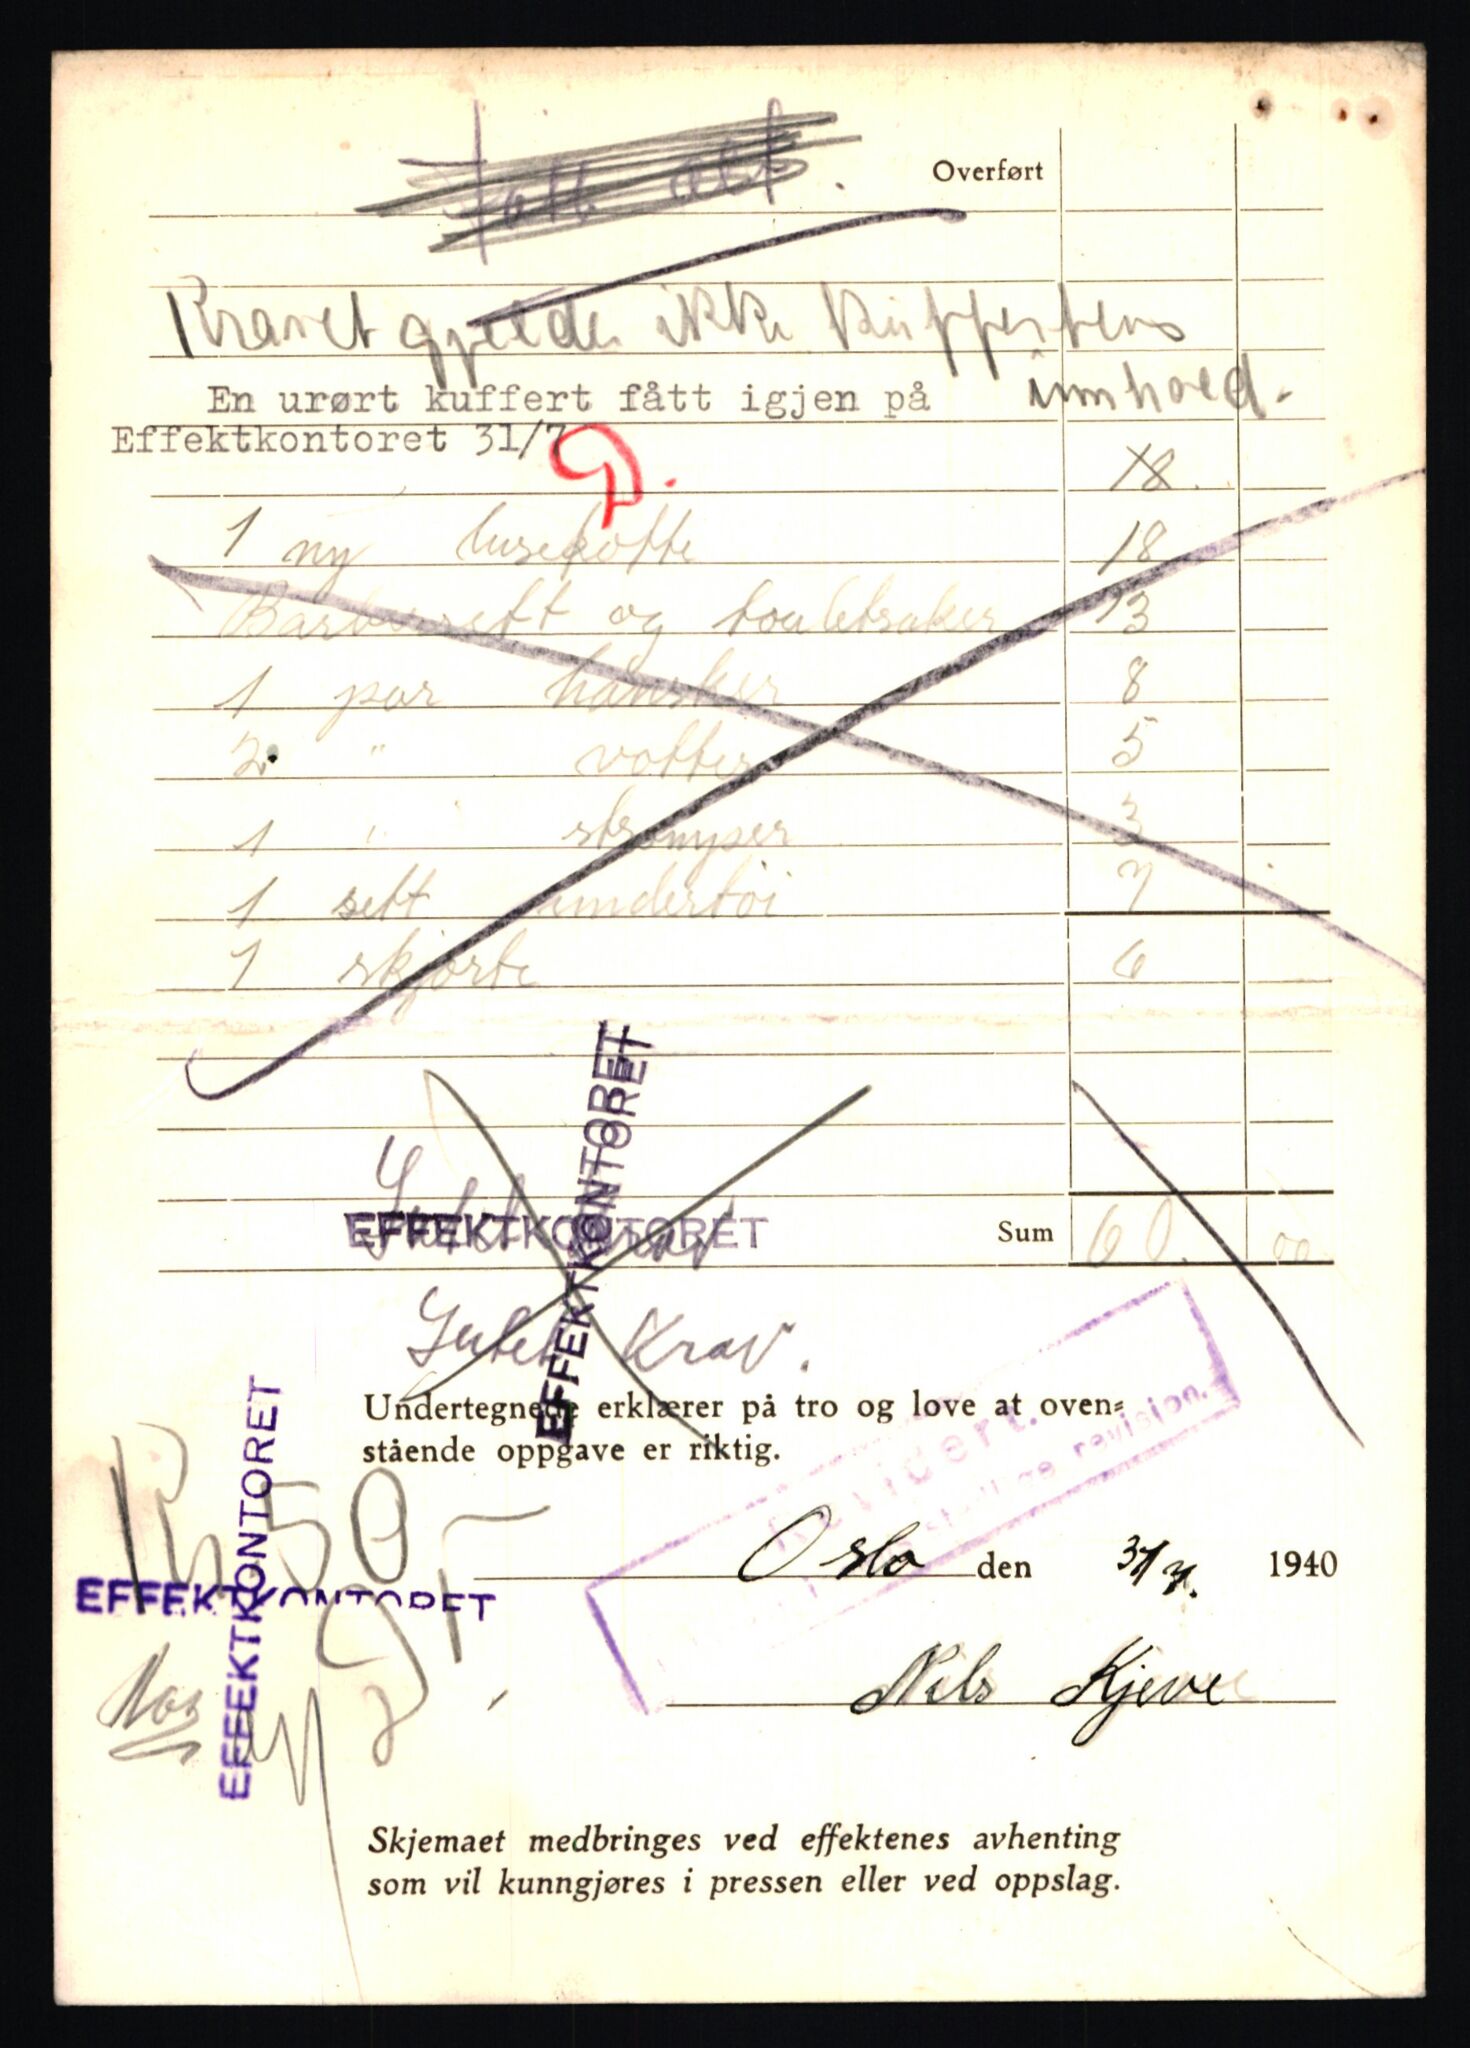 Fått alt.
Overført
Kravet gjelder ikke kuffertens
innhold.
En urørt kuffert fått igjen på
Effektkontoret 31/7
18
1 ny lusekofte 18
Barbersett og toalletsaker 13
1 par hansker 8
2 " votter 5
1 " strømper 3
1 sett undertøi 7
1 skjorte 6
EFFEKTKONTORET
EFFEKTKONTORET
Sum 60.00
Intet Krav.
Undertegnede erklærer på tro og love at oven-
stående oppgave er riktig.
Revidert.
revision.
Kr 50
EFFEKTKONTORET
EFFEKTKONTORET
Oslo den 31/7. 1940
Nils Kjeve
Skjemaet medbringes ved effektenes avhenting
som vil kunngjøres i pressen eller ved oppslag.